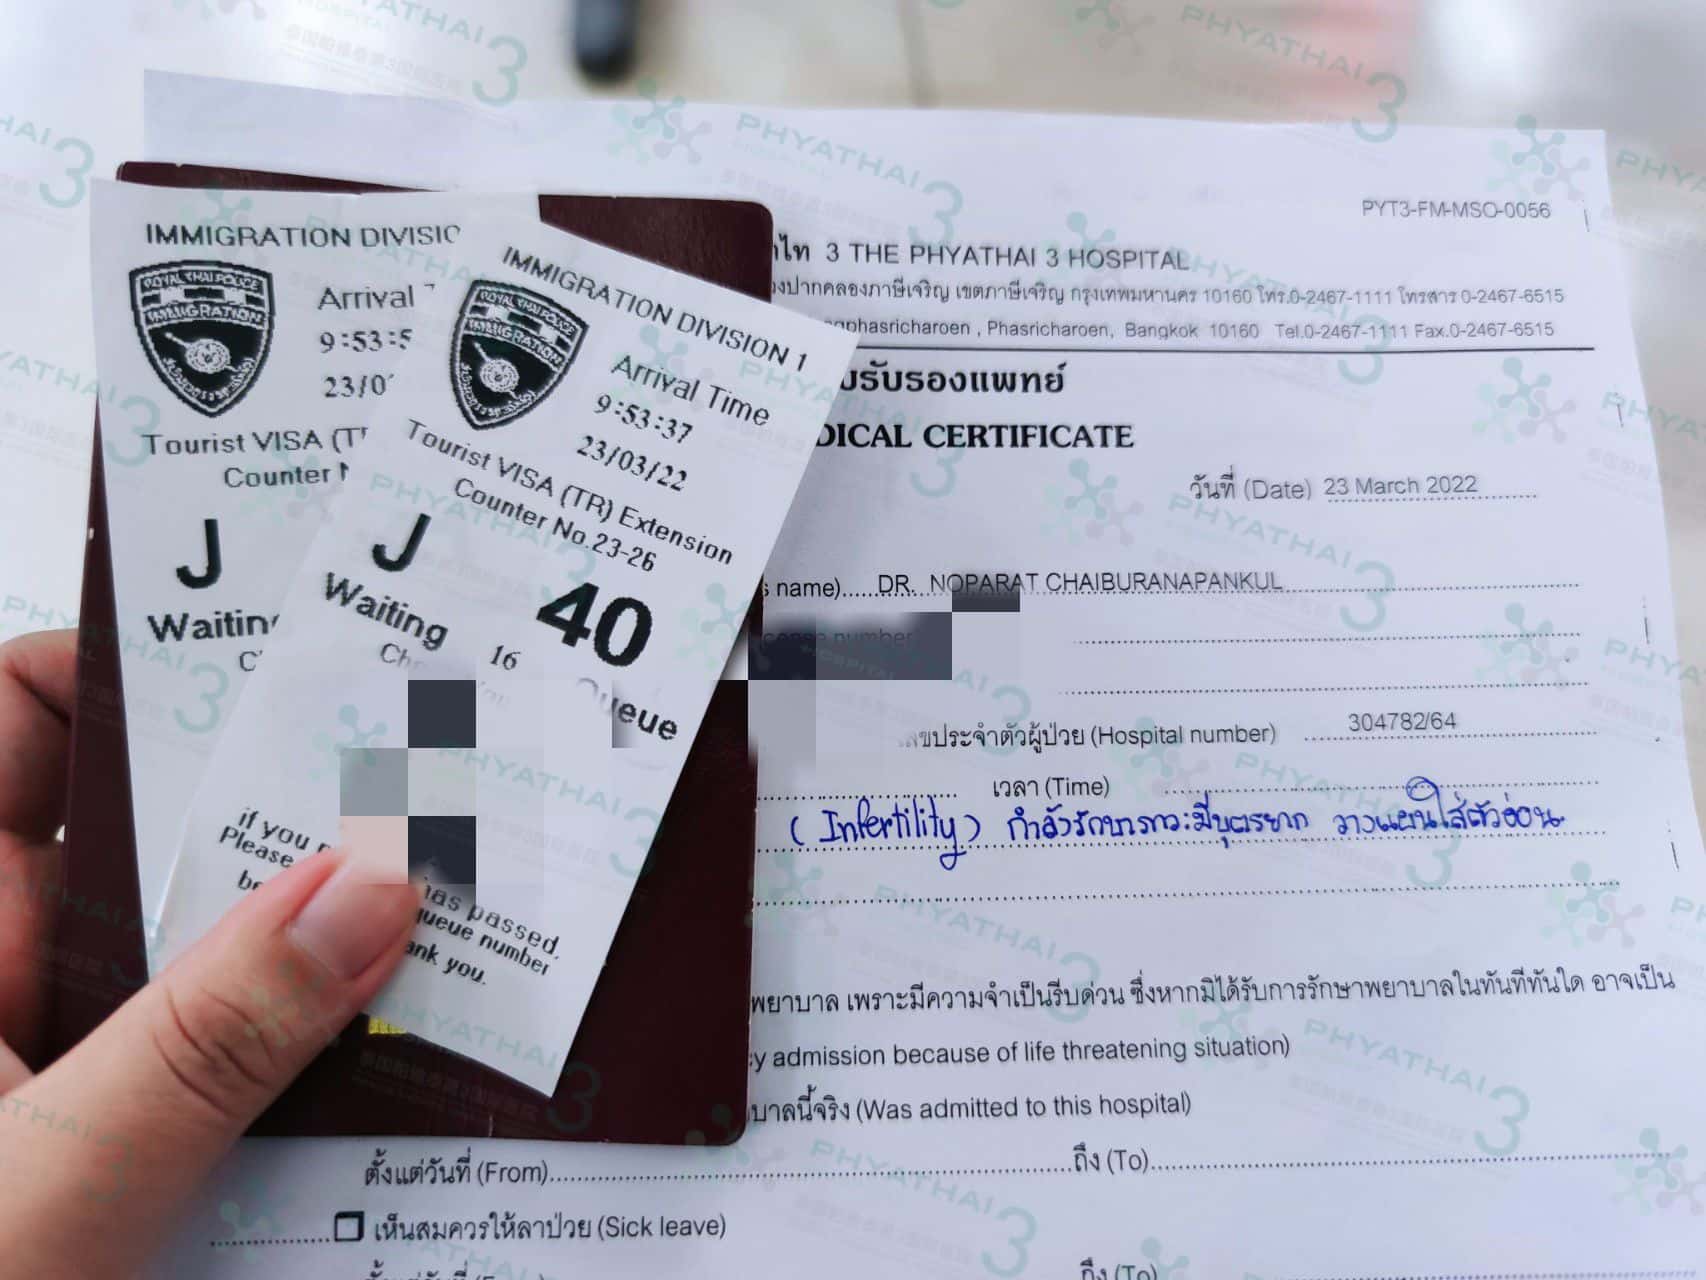 IMMIGRATION DIVISIO
ROYAL THAI POLICE
IMMIGRATION
Arrival
9:53:5
23/0
Tourist VISA (T
Counter
J
Waitin
IMMIGRATION DIVISION 1
ROYAL THAI POLICE
IMMIGRATION
Arrival Time
9:53:37
23/03/22
Tourist VISA (TR) Extension
Counter No.23-26
J 40
Waiting 16 Queue
if you has passed.
Please queue number
be ank you.
PYT3-FM-MSO-0056
ไท 3 THE PHYATHAI 3 HOSPITAL
งปากคลองภาษีเจริญ เขตภาษีเจริญ กรุงเทพมหานคร 10160 โทร.0-2467-1111 โทรสาร 0-2467-6515
gphasricharoen , Phasricharoen, Bangkok 10160 Tel.0-2467-1111 Fax.0-2467-6515
บรับรองแพทย์
DICAL CERTIFICATE
วันที่ (Date) 23 March 2022
s name)......DR. NOPARAT CHAIBURANAPANKUL
cense number
เลขประจำตัวผู้ป่วย (Hospital number) 304782/64
เวลา (Time)
(Infertility) กำลังรักษาภาวะมีบุตรยาก วางแผนใส่ตัวอ่อน
พยาบาล เพราะมีความจำเป็นรีบด่วน ซึ่งหากมิได้รับการรักษาพยาบาลในทันทีทันใด อาจเป็น
cy admission because of life threatening situation)
บาลนี้จริง (Was admitted to this hospital)
ตั้งแต่วันที่ (From) ถึง (To)
เห็นสมควรให้ลาป่วย (Sick leave)
ถึง (To)
PHYATHAI 3